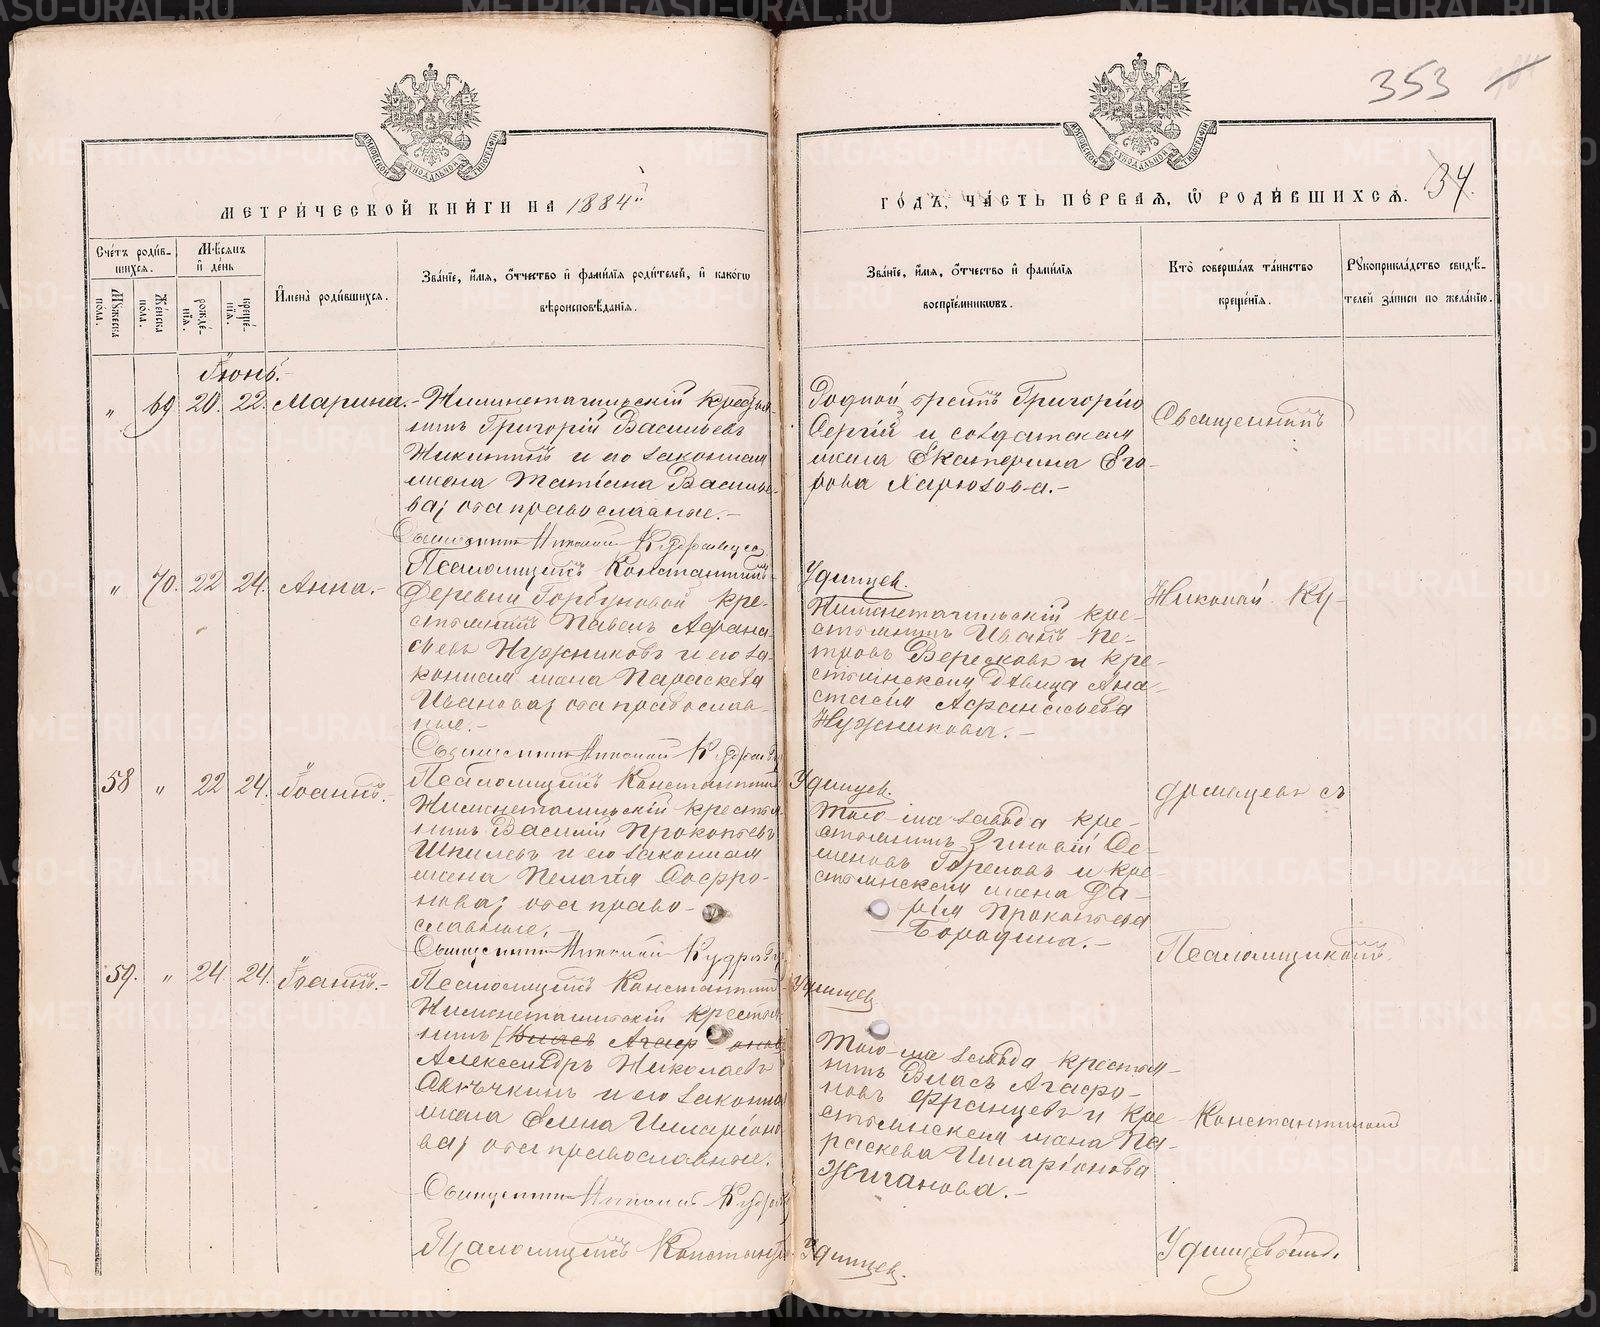 353
34.
МЕТРИЧЕСКОЙ КНИГИ НА 1884й
ГОДЪ, ЧАСТЬ ПЕРВАЯ, Ѿ РОДИВШИХСЯ.
Счетъ родив-
шихся.
Мѣсяцъ
и день
Имена родившихся.
Званіе, имя, отчество и фамилія родителей, и какогѡ
вѣроисповѣданія.
Мужеска пола.
Женска пола.
рожде-
нія.
креще-
нія.
Званіе, имя, отчество и фамилія
воспріемниковъ.
Кто совершалъ таинство
крещенія.
Рукоприкладство свидѣ-
телей записи по желанію.
Іюнь.
„ 69 20. 22. Марина. - Нижнетагильскій крестья-
нинъ Григорій Васильевъ
Никитинъ и его законная
жена Татіана Василье-
ва; оба православные. -
Священникъ Николай Кудрявцевъ
Псаломщикъ Константинъ Удинцев.
Родной братъ Григорія
Сергій и солдатская
жена Екатерина Его-
рова Харюзова. -
Священникъ
„ 70. 22 24. Анна. -
Деревни Горбуновой кре-
стьянинъ Павелъ Афана-
сьевъ Нужниковъ и его за-
конная жена Параскева
Иванова; оба православ-
ные. -
Священникъ Николай Кудрявц
Псаломщикъ Константинъ Удинцев.
Нижнетагильскій кре-
стьянинъ Иванъ Пе-
тровъ Вересковъ и кре-
стьянская дѣвица Ана-
стасія Афанасьева
Нужникова. -
Николай Ку-
58 „ 22 24. Іоаннъ.
Нижнетагильскій крестья-
нинъ Василій Прокопьевъ
Шпилевъ и его законная
жена Пелагія Софро-
нова; оба право-
славные.
Священникъ Николай Кудрявц
Псаломщикъ Константинъ Удинцев
Того-же завода кре-
стьянинъ Зиновій Се-
меновъ Гореловъ и кре-
стьянская жена Да-
рія Прокопьева
Бородина. -
дрявцевъ съ
Псаломщикомъ
59. „ 24. 24. Іоаннъ. -
Нижнетагильскій крестья-
нинъ [Власъ Агаф оновъ
Александръ Николаевъ
и его законная
жена Елена Иларіоно-
ва; оба православные.
Священникъ Николай Кудрявц
Псаломщикъ Константинъ Удинцев.
Того-же завода крестья-
нинъ Власъ Агафо-
новъ Францевъ и кре-
стьянская жена Па-
раскева Иларіонова
Жиганова. -
Константиномъ
Удинцевымъ.
METRIKI.GASO-URAL.RU